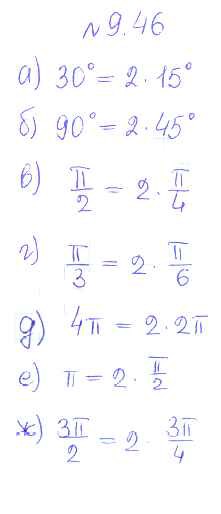 № 9.46
а) 30° = 2 · 15°
б) 90° = 2 · 45°
в) π/2 = 2 · π/4
г) π/3 = 2 · π/6
д) 4π = 2 · 2π
е) π = 2 · π/2
ж) 3π/2 = 2 · 3π/4